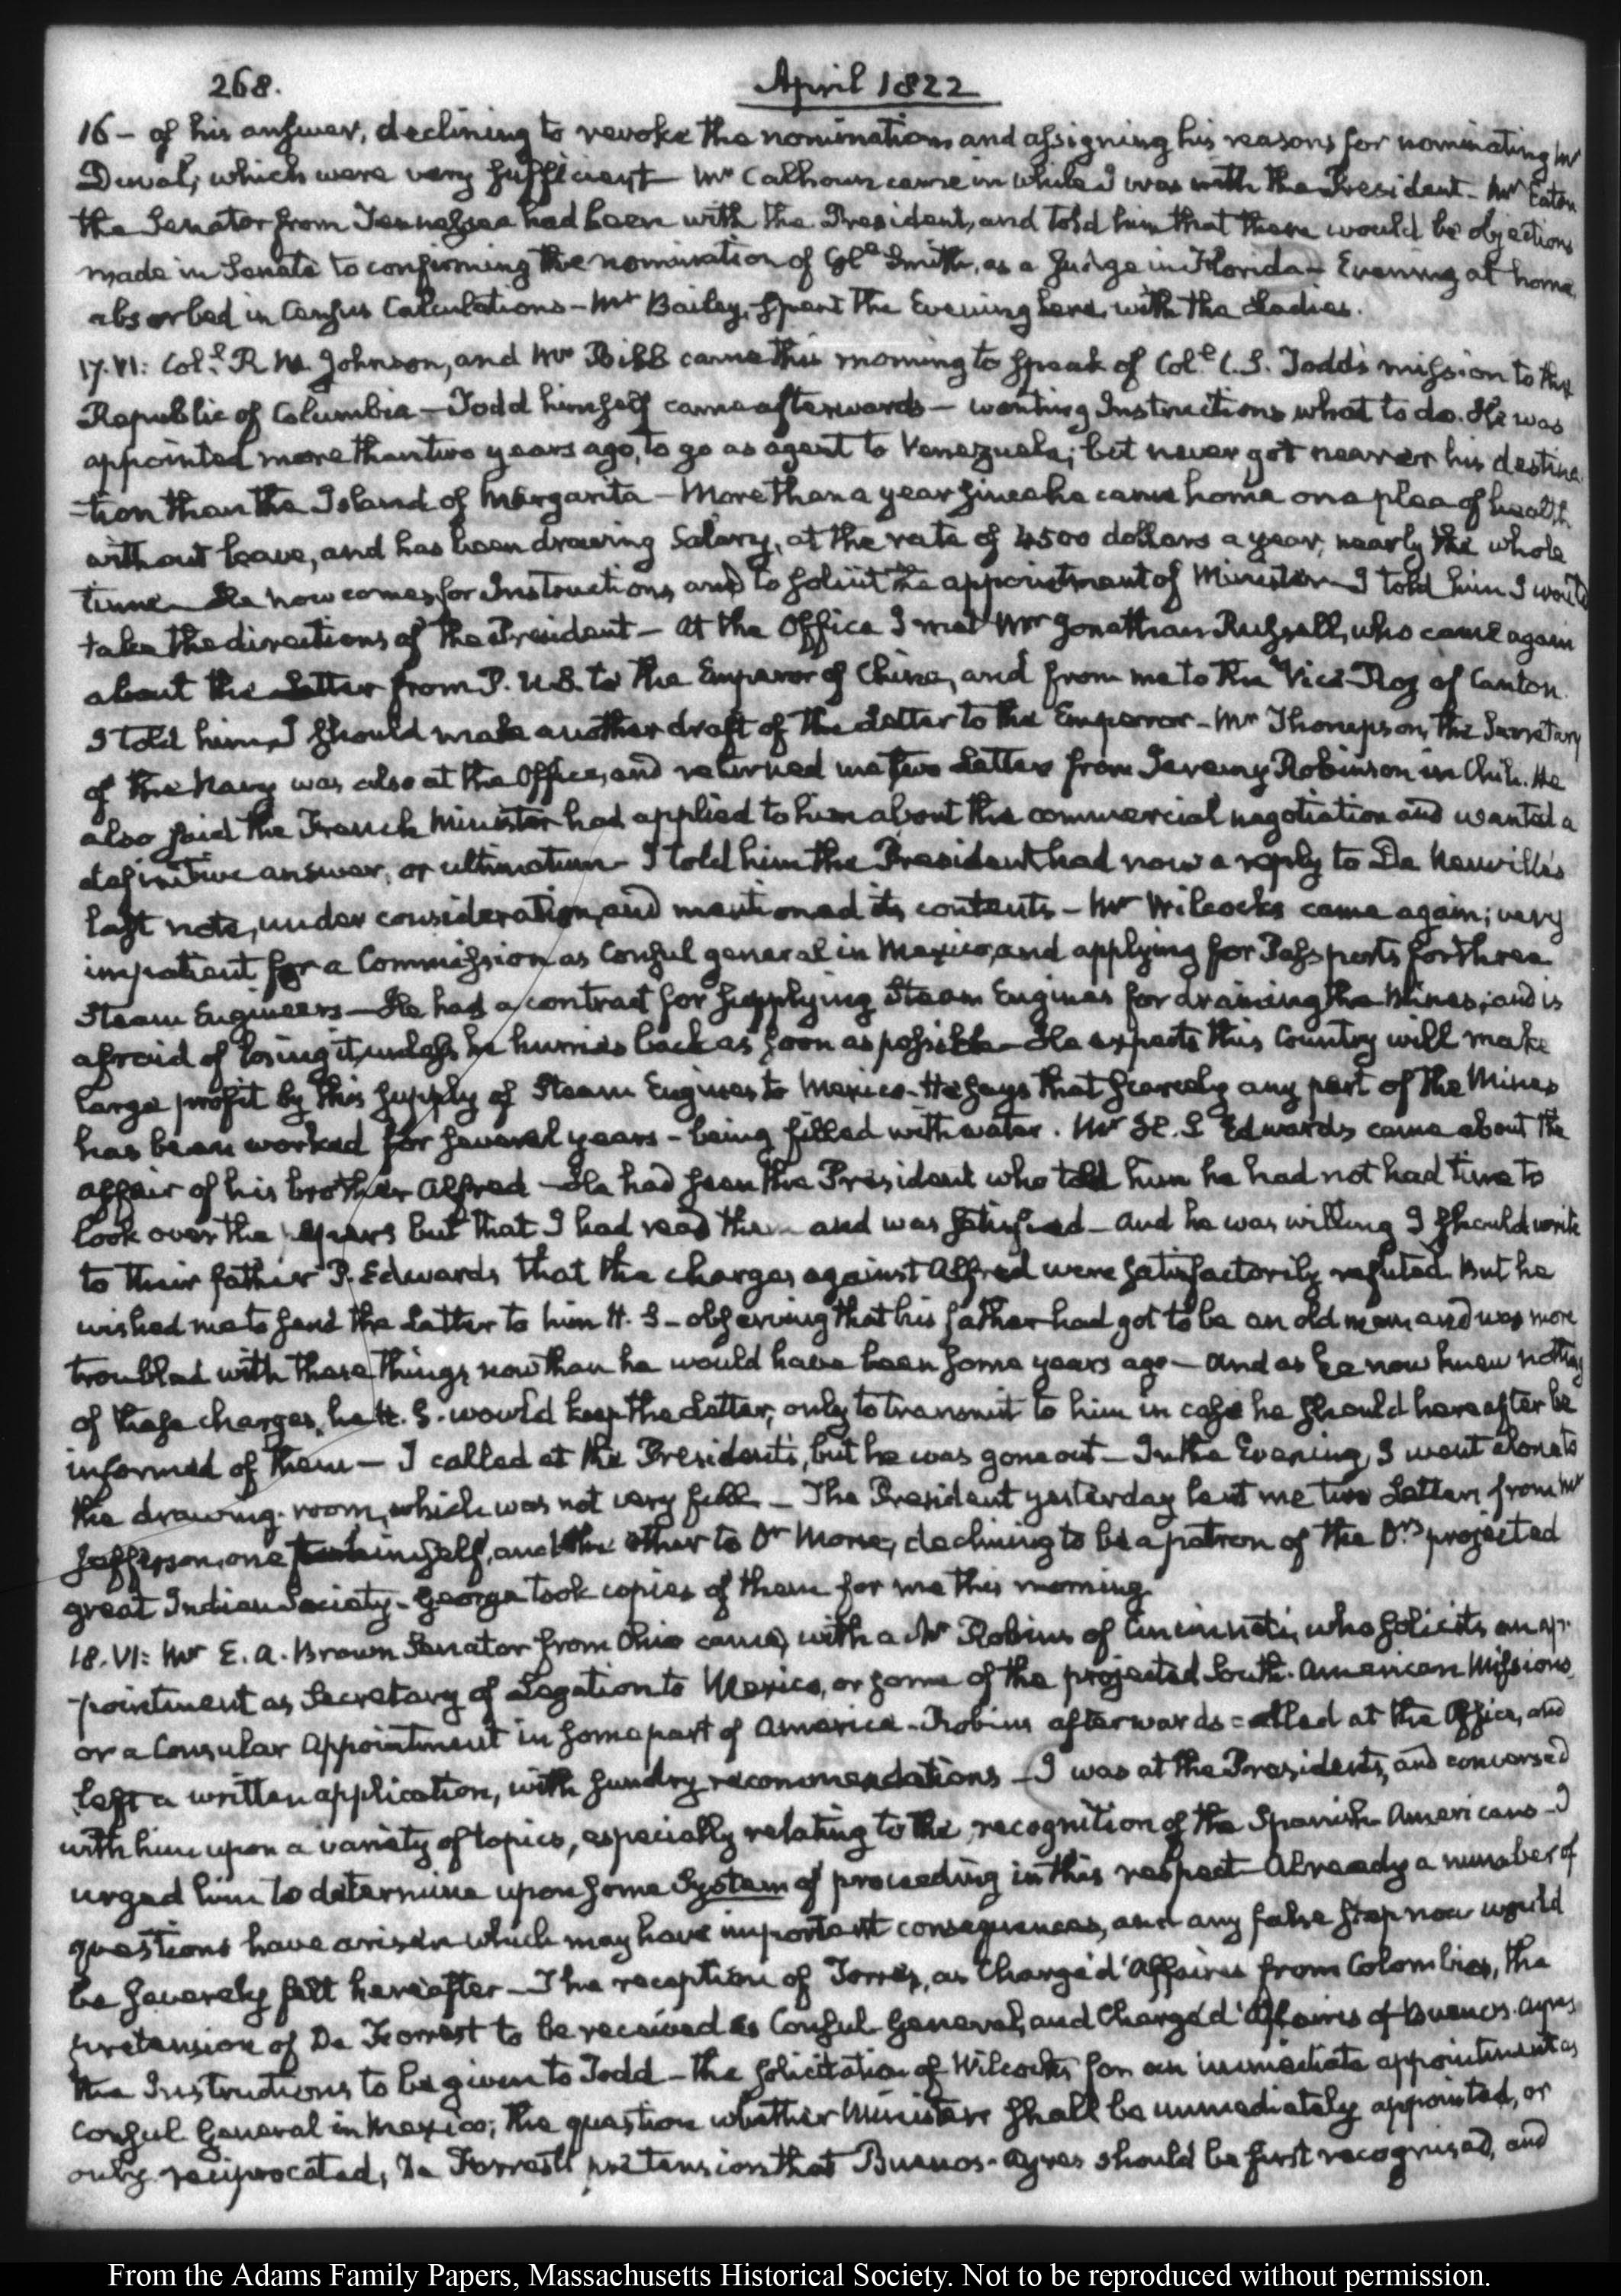 268.
April 1822
16 - of his answer, declining to revoke the nominations and assigning his reasons for nominating Mr
Duval, which were very sufficient - Mr Calhoun came in while I was with the President - Mr Eaton
the Senator from Tennessee had been with the President, and told him that there would be objections
made in Senate to confirming the nomination of Smith, as a Judge in Florida - Evening at home
absorbed in Census Calculations - Mr Bailey, spent the Evening here, with the Ladies.
17. VI: Coll. R. M. Johnson, and Mr Bibb came this morning to speak of Coll. C. S. Todd's mission to the
Republic of Columbia - Todd himself came afterwards - wanting Instructions what to do. He was
appointed more than two years ago, to go as agent to Venezuela; but never got nearer his destina
-tion than the Island of Margarita - More than a year since he came home on a plea of health
without leave, and has been drawing Salary, at the rate of 4500 dollars a year, nearly the whole
time. He now comes for Instructions and to solicit the appointment of Minister - I told him I would
take the directions of the President - At the Office I met Mr Jonathan Russell, who came again
about the Letter from P. U.S. to the Emperor of China, and from me to the Vice-Roy of Canton.
I told him I should make another draft of the Letter to the Emperor - Mr Thompson, the Secretary
of the Navy was also at the Office, and returned me two Letters from Jeremy Robinson in Chili. He
also said the French Minister had applied to him about the commercial negotiation and wanted a
definitive answer, or ultimatum - I told him the President had now a reply to De Neuville's
last note, under consideration, and mentioned its contents - Mr Wilcocks came again; very
impatient for a Commission as Consul general in Mexico, and applying for Passports for three
Steam Engineers - He has a contract for supplying Steam Engines for draining the Mines; and is
afraid of losing it, unless he hurries back as soon as possible - He expects this Country will make
large profit by this supply of Steam Engines to Mexico - He says that scarcely any part of the Mines
has been worked for several years - being filled with water. Mr H. S Edwards came about the
affair of his brother Alfred - He had seen the President who told him he had not had time to
look over the papers but that I had read them and was satisfied - and he was willing I should write
to their father P. Edwards that the charges against Alfred were satisfactorily refuted. But he
wished me to send the Letter to him H. S - observing that his father had got to be an old man, and was more
troubled with these things now than he would have been some years ago - and as he now knew nothing
of these charges, he H. S. would keep the Letter, only to transmit to him in case he should hereafter be
informed of them - I called at the President's, but he was gone out - In the Evening, I went alone to
the drawing-room, which was not very full - The President yesterday lent me two Letters from Mr
Jefferson, one to himself, and the other to Dr Morse, declining to be a patron of the Drs projected
great Indian Society - George took copies of them for me this morning.
18. VI: Mr E. A. Brown Senator from Ohio came, with a Mr Robins of Cincinnati, who solicits an ap-
-pointment as Secretary of Legation to Mexico, or some of the projected South-American Missions
or a Consular Appointment in some part of America - Robins afterwards called at the Office, and
left a written application, with sundry recommendations - I was at the President's, and conversed
with him upon a variety of topics, especially relating to the recognition of the Spanish Americans - I
urged him to determine upon some System of proceeding in this respect - Already a number of
questions have arisen which may have important consequences, and any false step now would
be severely felt hereafter - The reception of Torres, as Chargé d'Affaires from Colombia, the
pretension of De Forrest to be received as Consul General, and Chargé d'Affaires of Buenos-Ayres
the Instructions to be given to Todd - the solicitation of Wilcocks for an immediate appointment as
Consul General in Mexico; the question whether Ministers shall be immediately appointed, or
only reciprocated, De Forrest's pretension that Buenos-Ayres should be first recognised, and
From the Adams Family Papers, Massachusetts Historical Society. Not to be reproduced without permission.